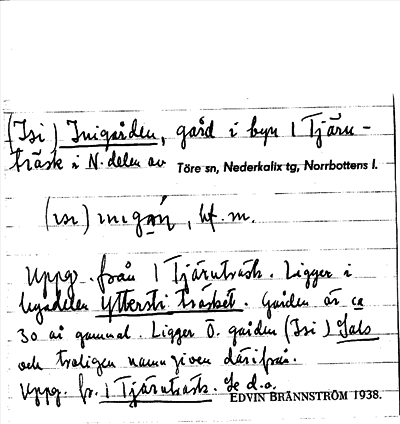 (Isi) Inigården, gård i byn 1 Tjärn-
träsk i N. delen av Töre sn, Nederkalix tg, Norrbottens l.
bf. m.
Uppg. från 1 Tjärnträsk. Ligger i
bydelen Yttersti träsket. Gården är ca
30 år gammal. Ligger Ö. gården (Isi) Jals
och troligen namngiven därifrån.
Uppg. fr. 1 Tjärnträsk. Se d.o.
EDVIN BRÄNNSTRÖM 1938.